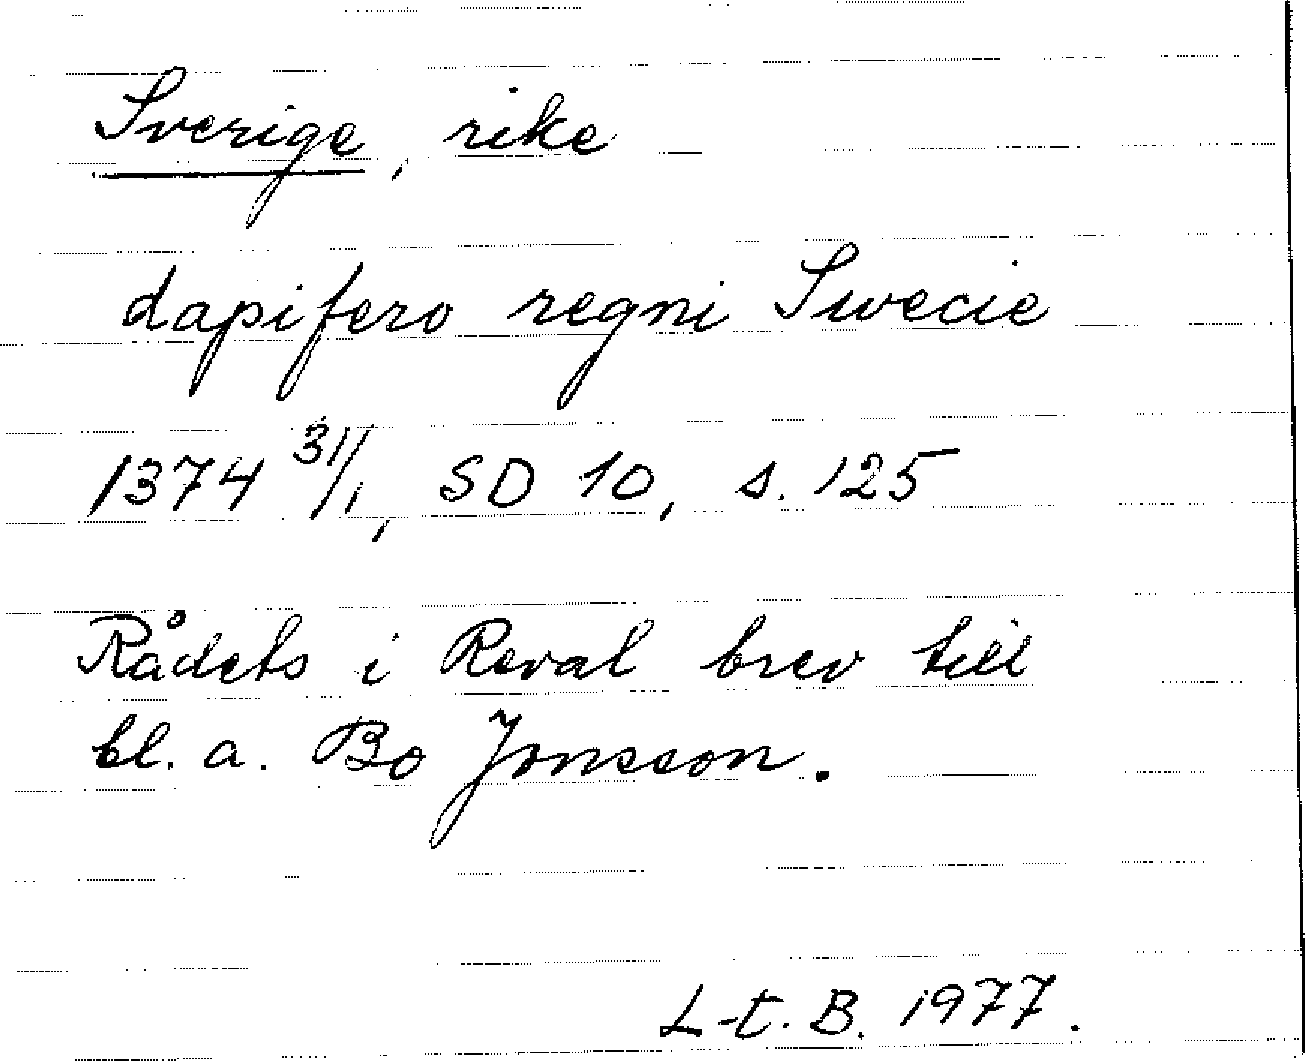 Sverige, rike
dapifero regni Swecie
1374 31/1, SD 10, s. 125
Rådets i Reval brev till
bl. a. Bo Jonsson.
L-t. B. 1977.